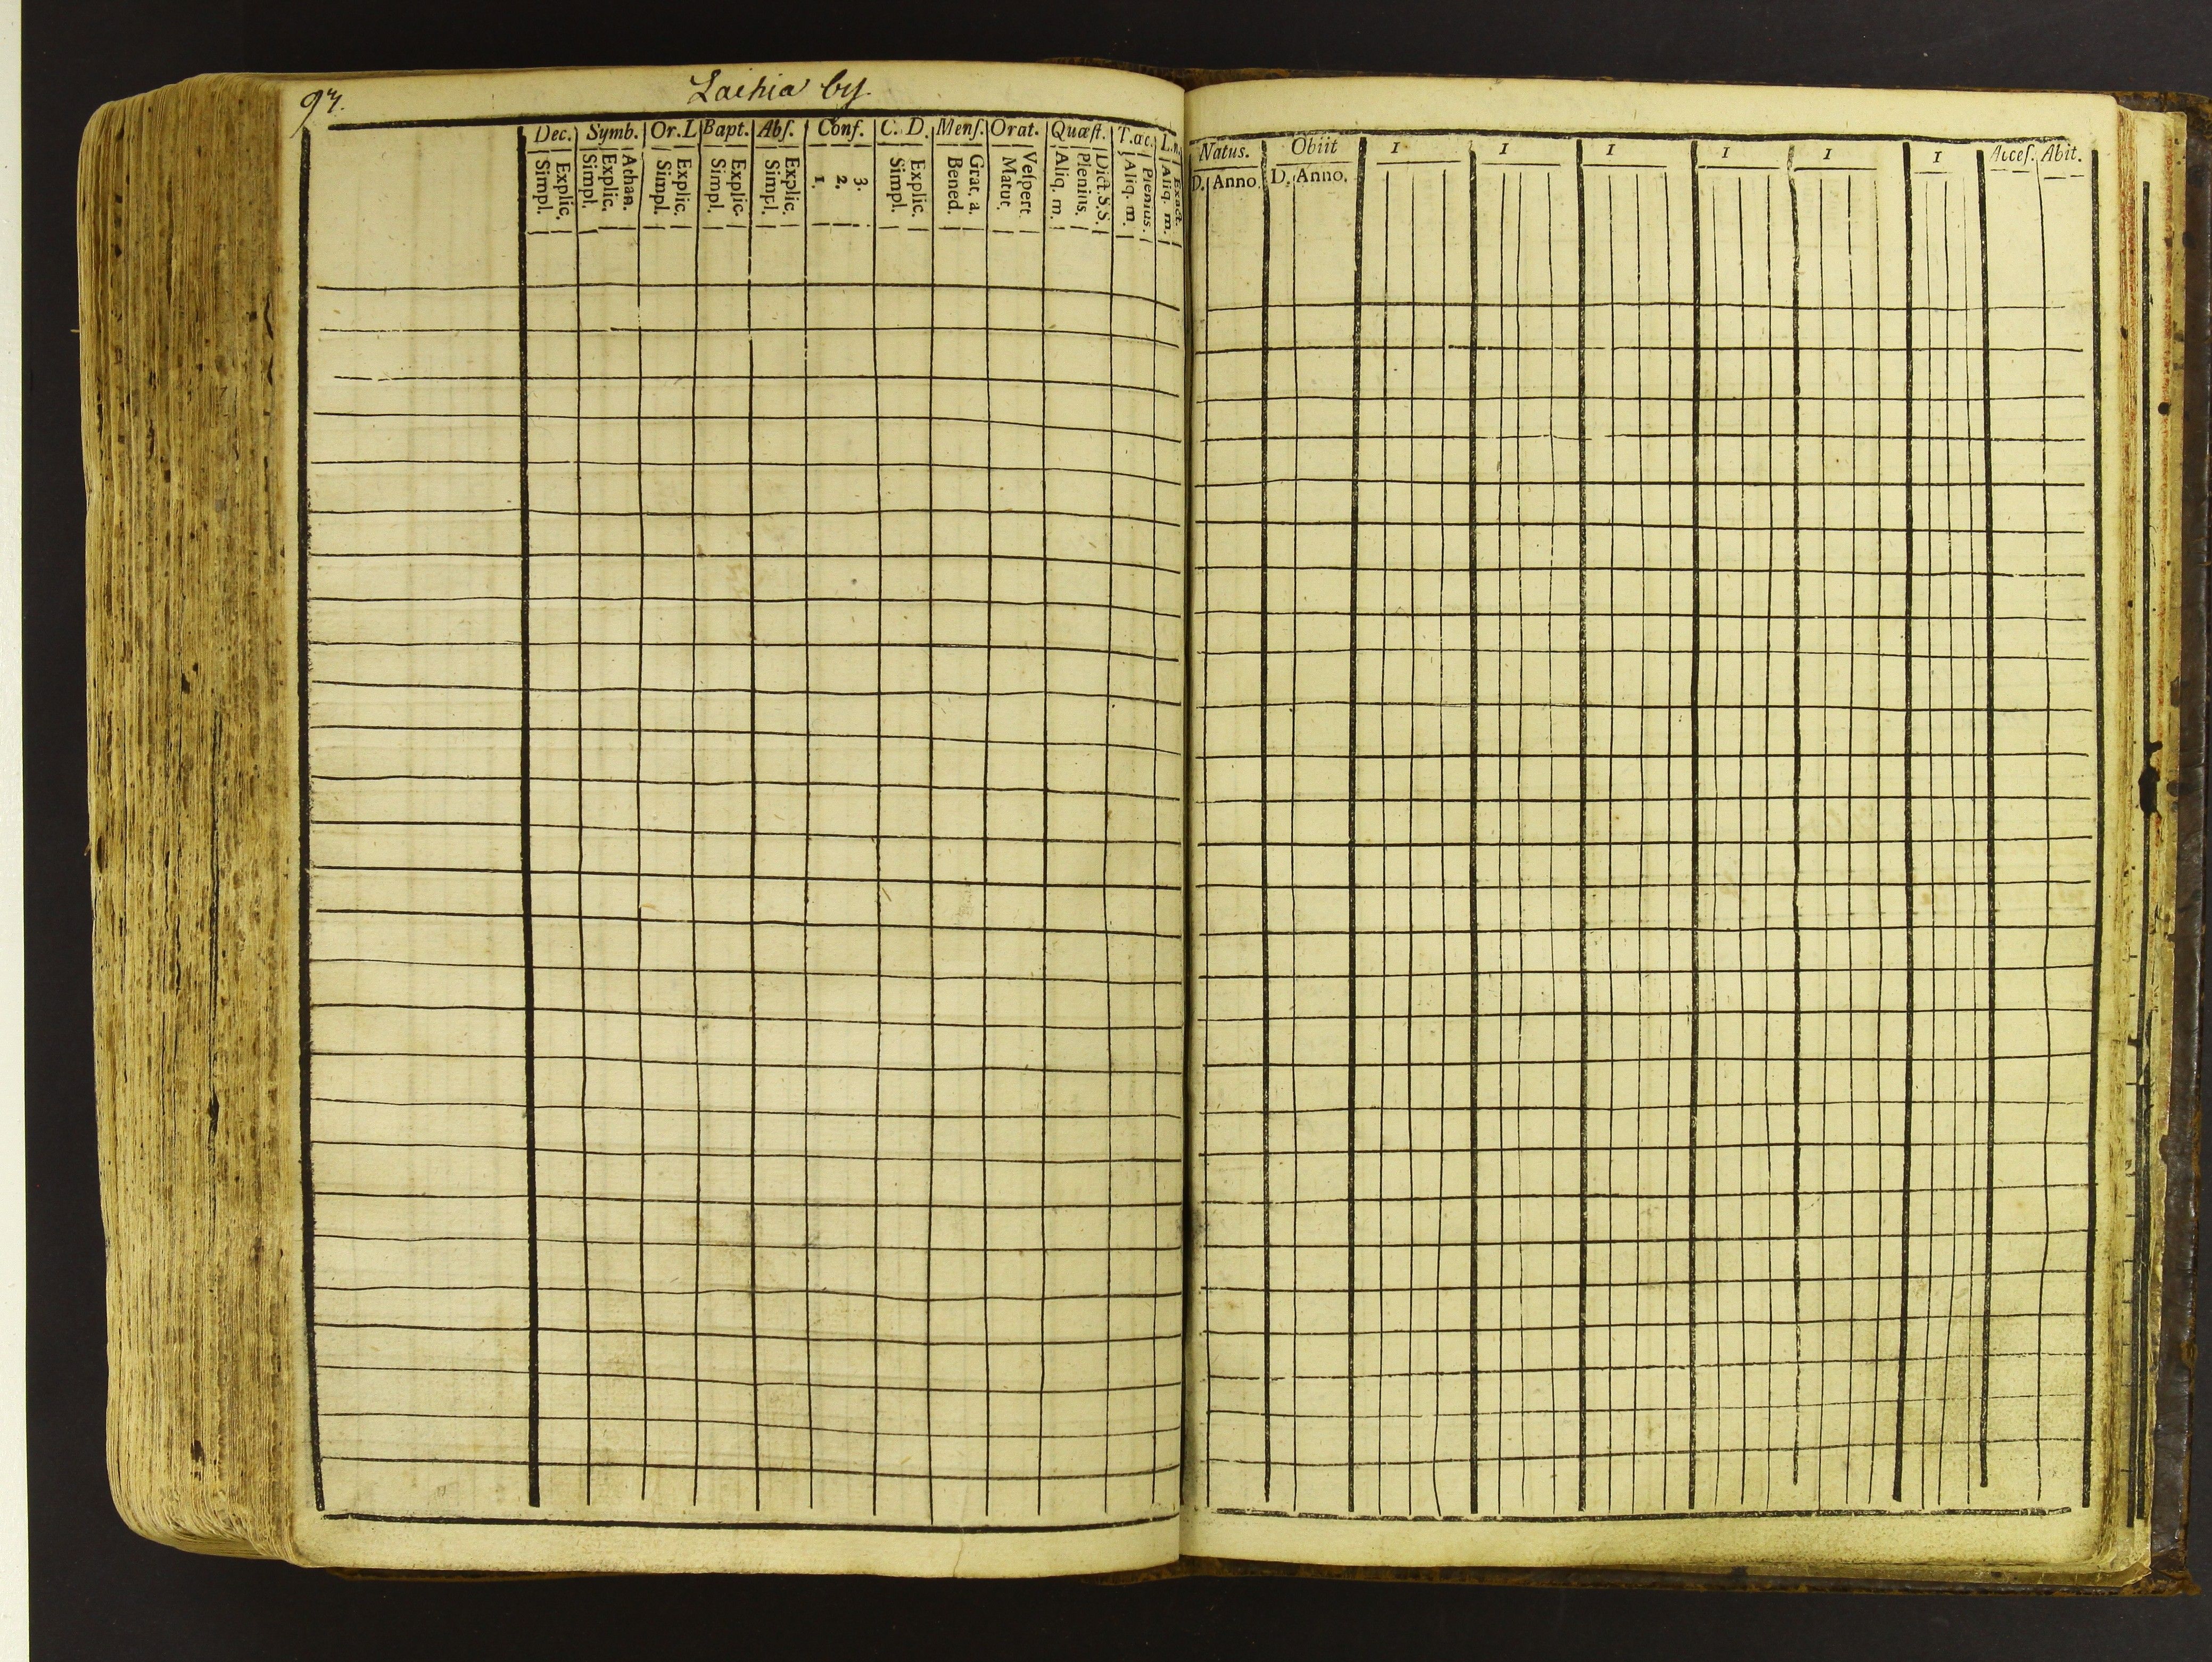 97.
Laihia by.
Dec. Symb. Or.L Bapt. Abſ. Conf. C. D. Menſ. Orat. Quæſt. T.æc. L.n.
Simpl. Explic. Simpl. Explic. Athan. Simpl. Explic. Simpl. Explic. Simpl. Explic. 1. 2. 3. Simpl. Explic. Bened. Grat. a. Matut. Veſpert. Aliq. m. Plenius. Dict.S.S. Aliq. m. Plenius. Aliq. m. Exact.
Natus. Obiit 1 1 1 1 1 1 Acceſ. Abit.
D. Anno. D. Anno.